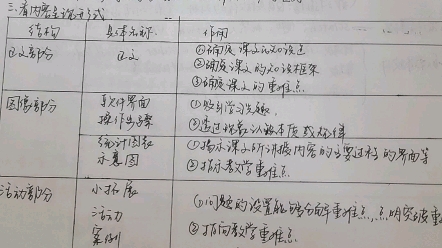 三、看内容呈现形式
结构 具体名称 作用
正文部分 正文 ①确度课文的知识点
②确度课文的知识框架
③确度课文的重难点
图像部分 软件界面 ①吸引学习兴趣
操作步骤 ②透过现象认识本质或规律
统计图和 ①揭示课文所讲授内容的主要过程的界面等
示意图 ②指示教学重难点
活动部分 小拓展 ①问题的设置能够分解重难点,点明突破重
活动 ②指向教学重难点
案例